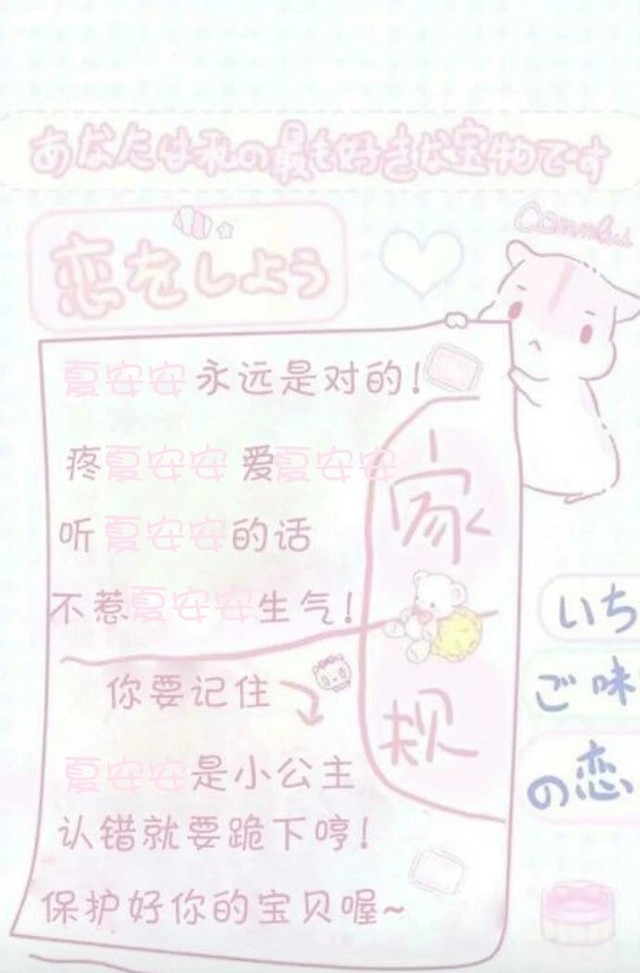 あなたは私の最も好きな宝物です
恋をしよう
夏安安永远是对的!
疼夏安安 爱夏安安
听夏安安的话
不惹夏安安生气!
家规
你要记住
夏安安是小公主
认错就要跪下哼!
保护好你的宝贝喔~
いち
ご味
の恋